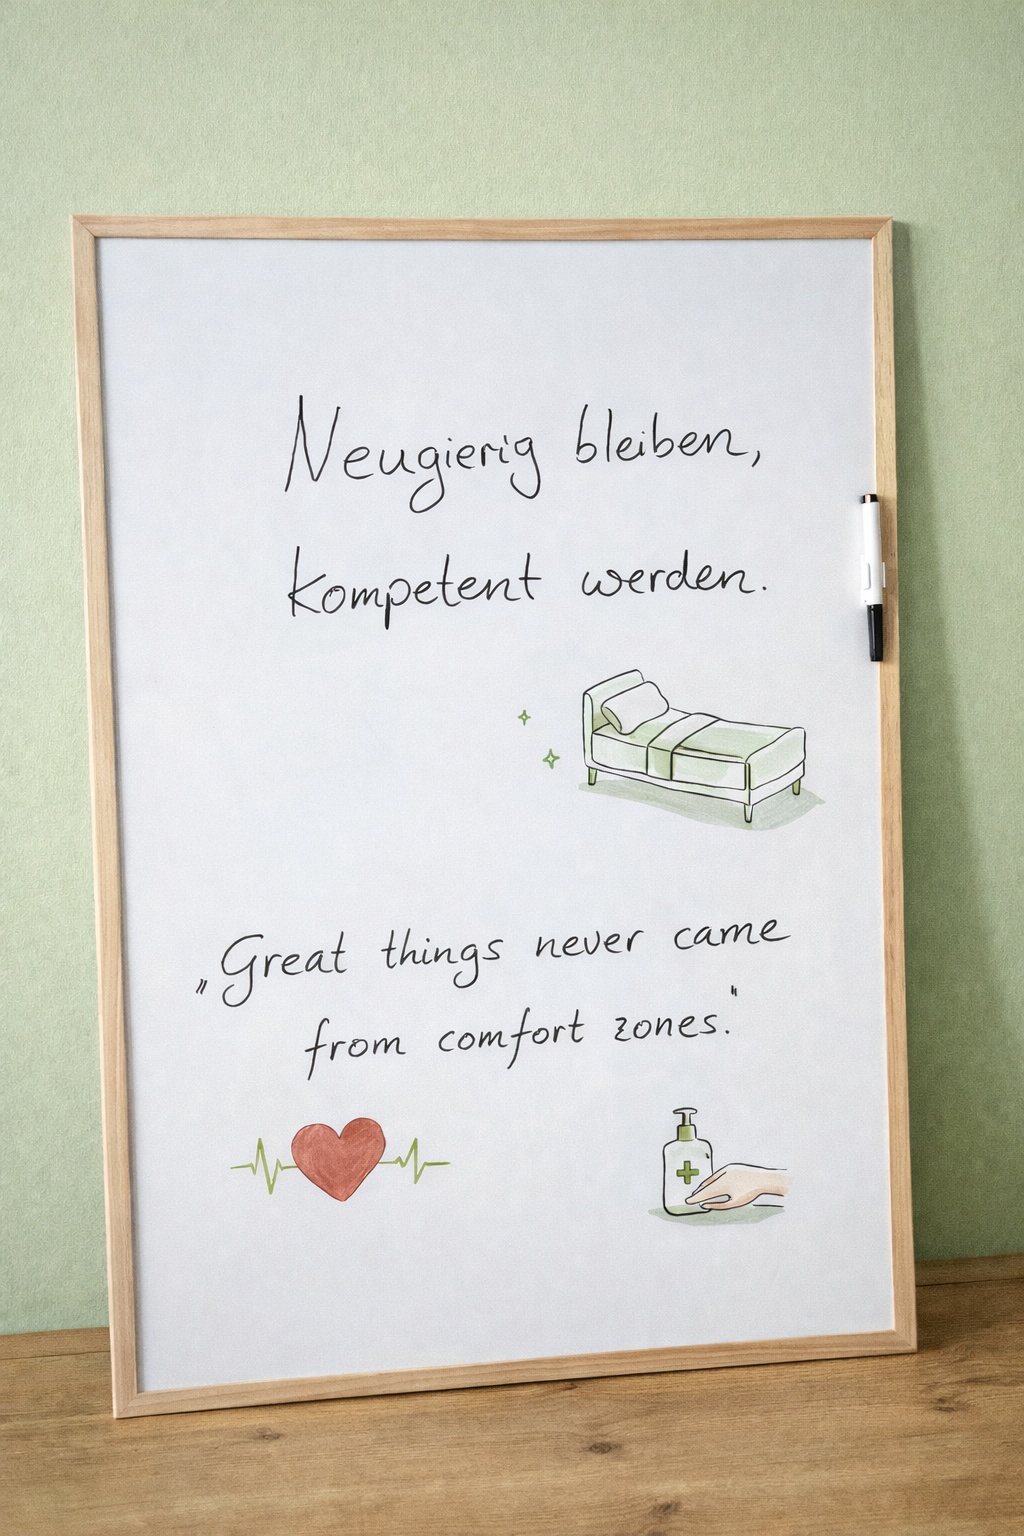 Neugierig bleiben,
kompetent werden.
„Great things never came
from comfort zones."